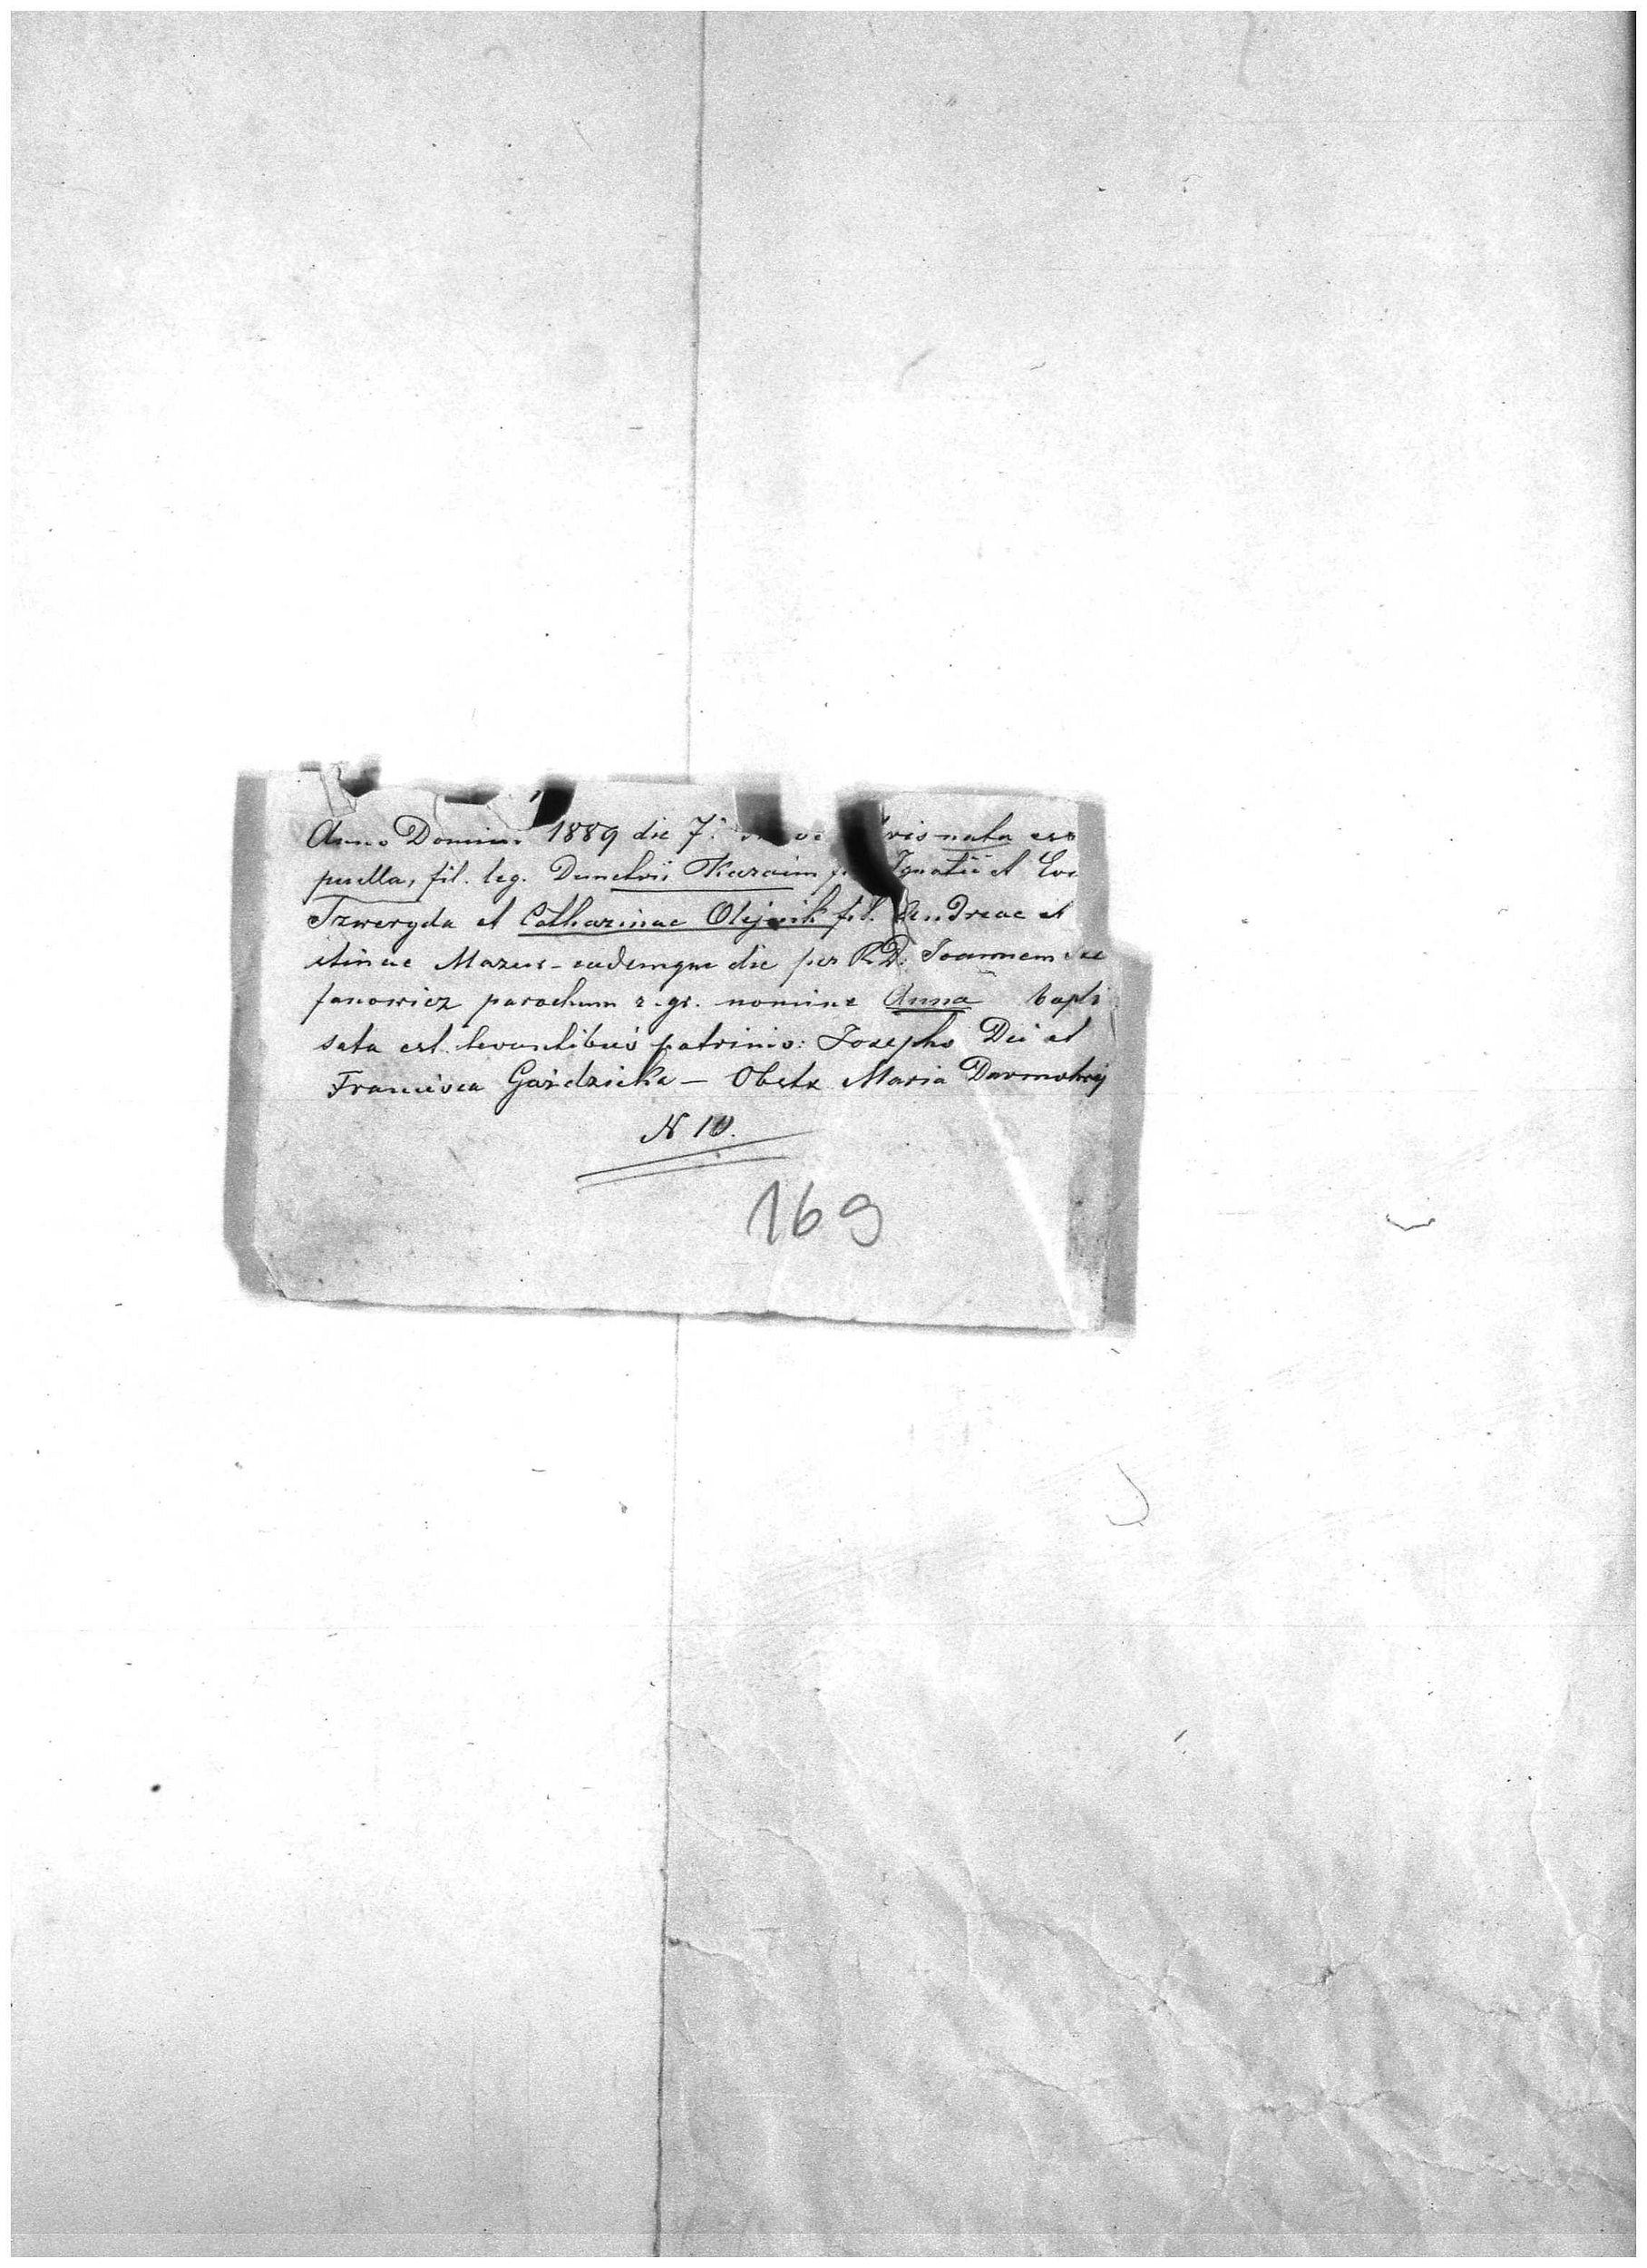 Anno Domini 1889 die 7. nata est
puella, fil. leg. Demetrii Karaim Ignatii et Eva
Tzweryda et Catharinae Olejnik fil. Andreae et
stinae Mazur - eademque die per R.D. Joannem Ste
fanowicz parochum r. gr. nomine Anna bapti
sata est levantibus patrinis: Josepho Dei et
Francisca Gażdzicka — Obstx Maria Darmohraj
N 10.
169